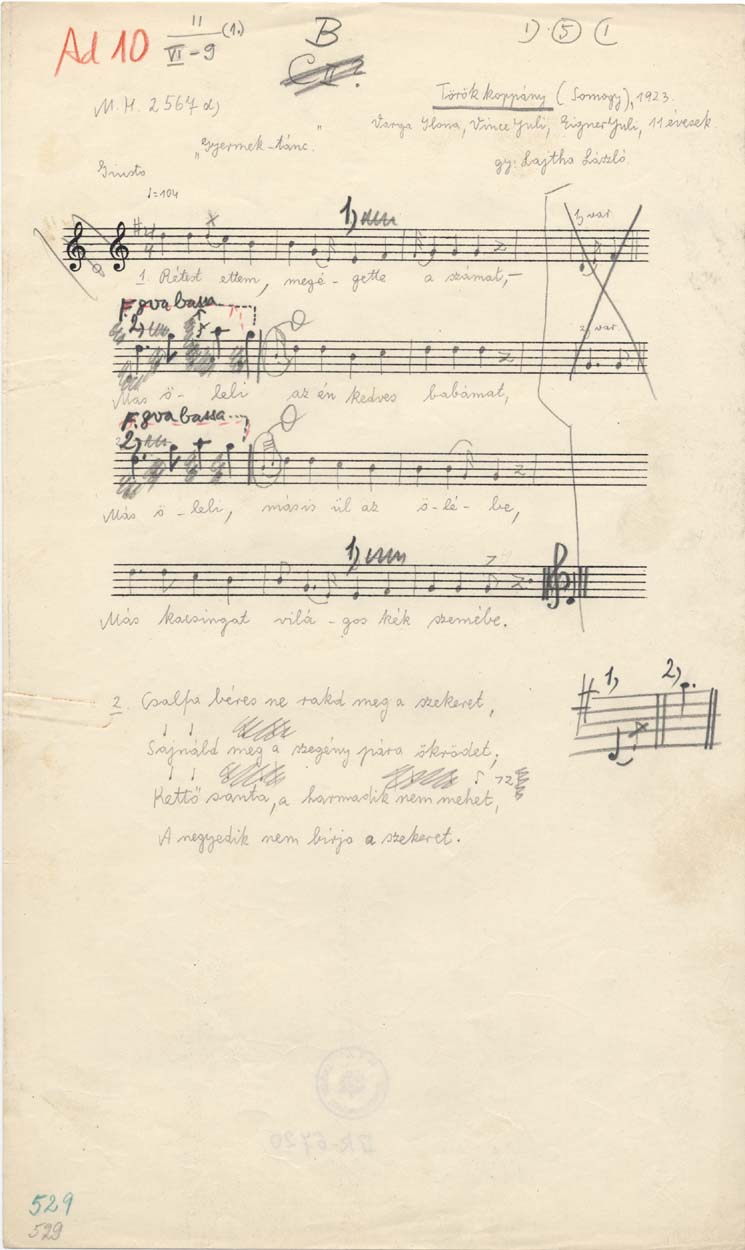 Ad 10 II (1.) B 1) 5 (1
VI-9
C II.
M.H. 2567 d)
Törökkoppány (Somogy), 1923.
Varga Ilona, Vince Juli, Eigner Juli, 11 évesek
„Gyermek-tánc."
gy: Lajtha László
Giusto
♩=104
1)
1) var.
4
4
1. Rétest ettem, megé-gette a számat,
F. 8va bassa
2)
2) var.
Más ö-leli az én kedves babámat,
F. 8va bassa
2)
Más ö-leli, másis ül az ö-lé-be,
1)
Más kacsingat vilá-gos kék szemébe.
1) 2)
2. Csalfa béres ne rakd meg a szekeret,
Sajnáld meg a szegény pára ökrödet;
Kettő santa, a harmadik nem mehet,
A negyedik nem bírja a szekeret.
BR-6720
529
529